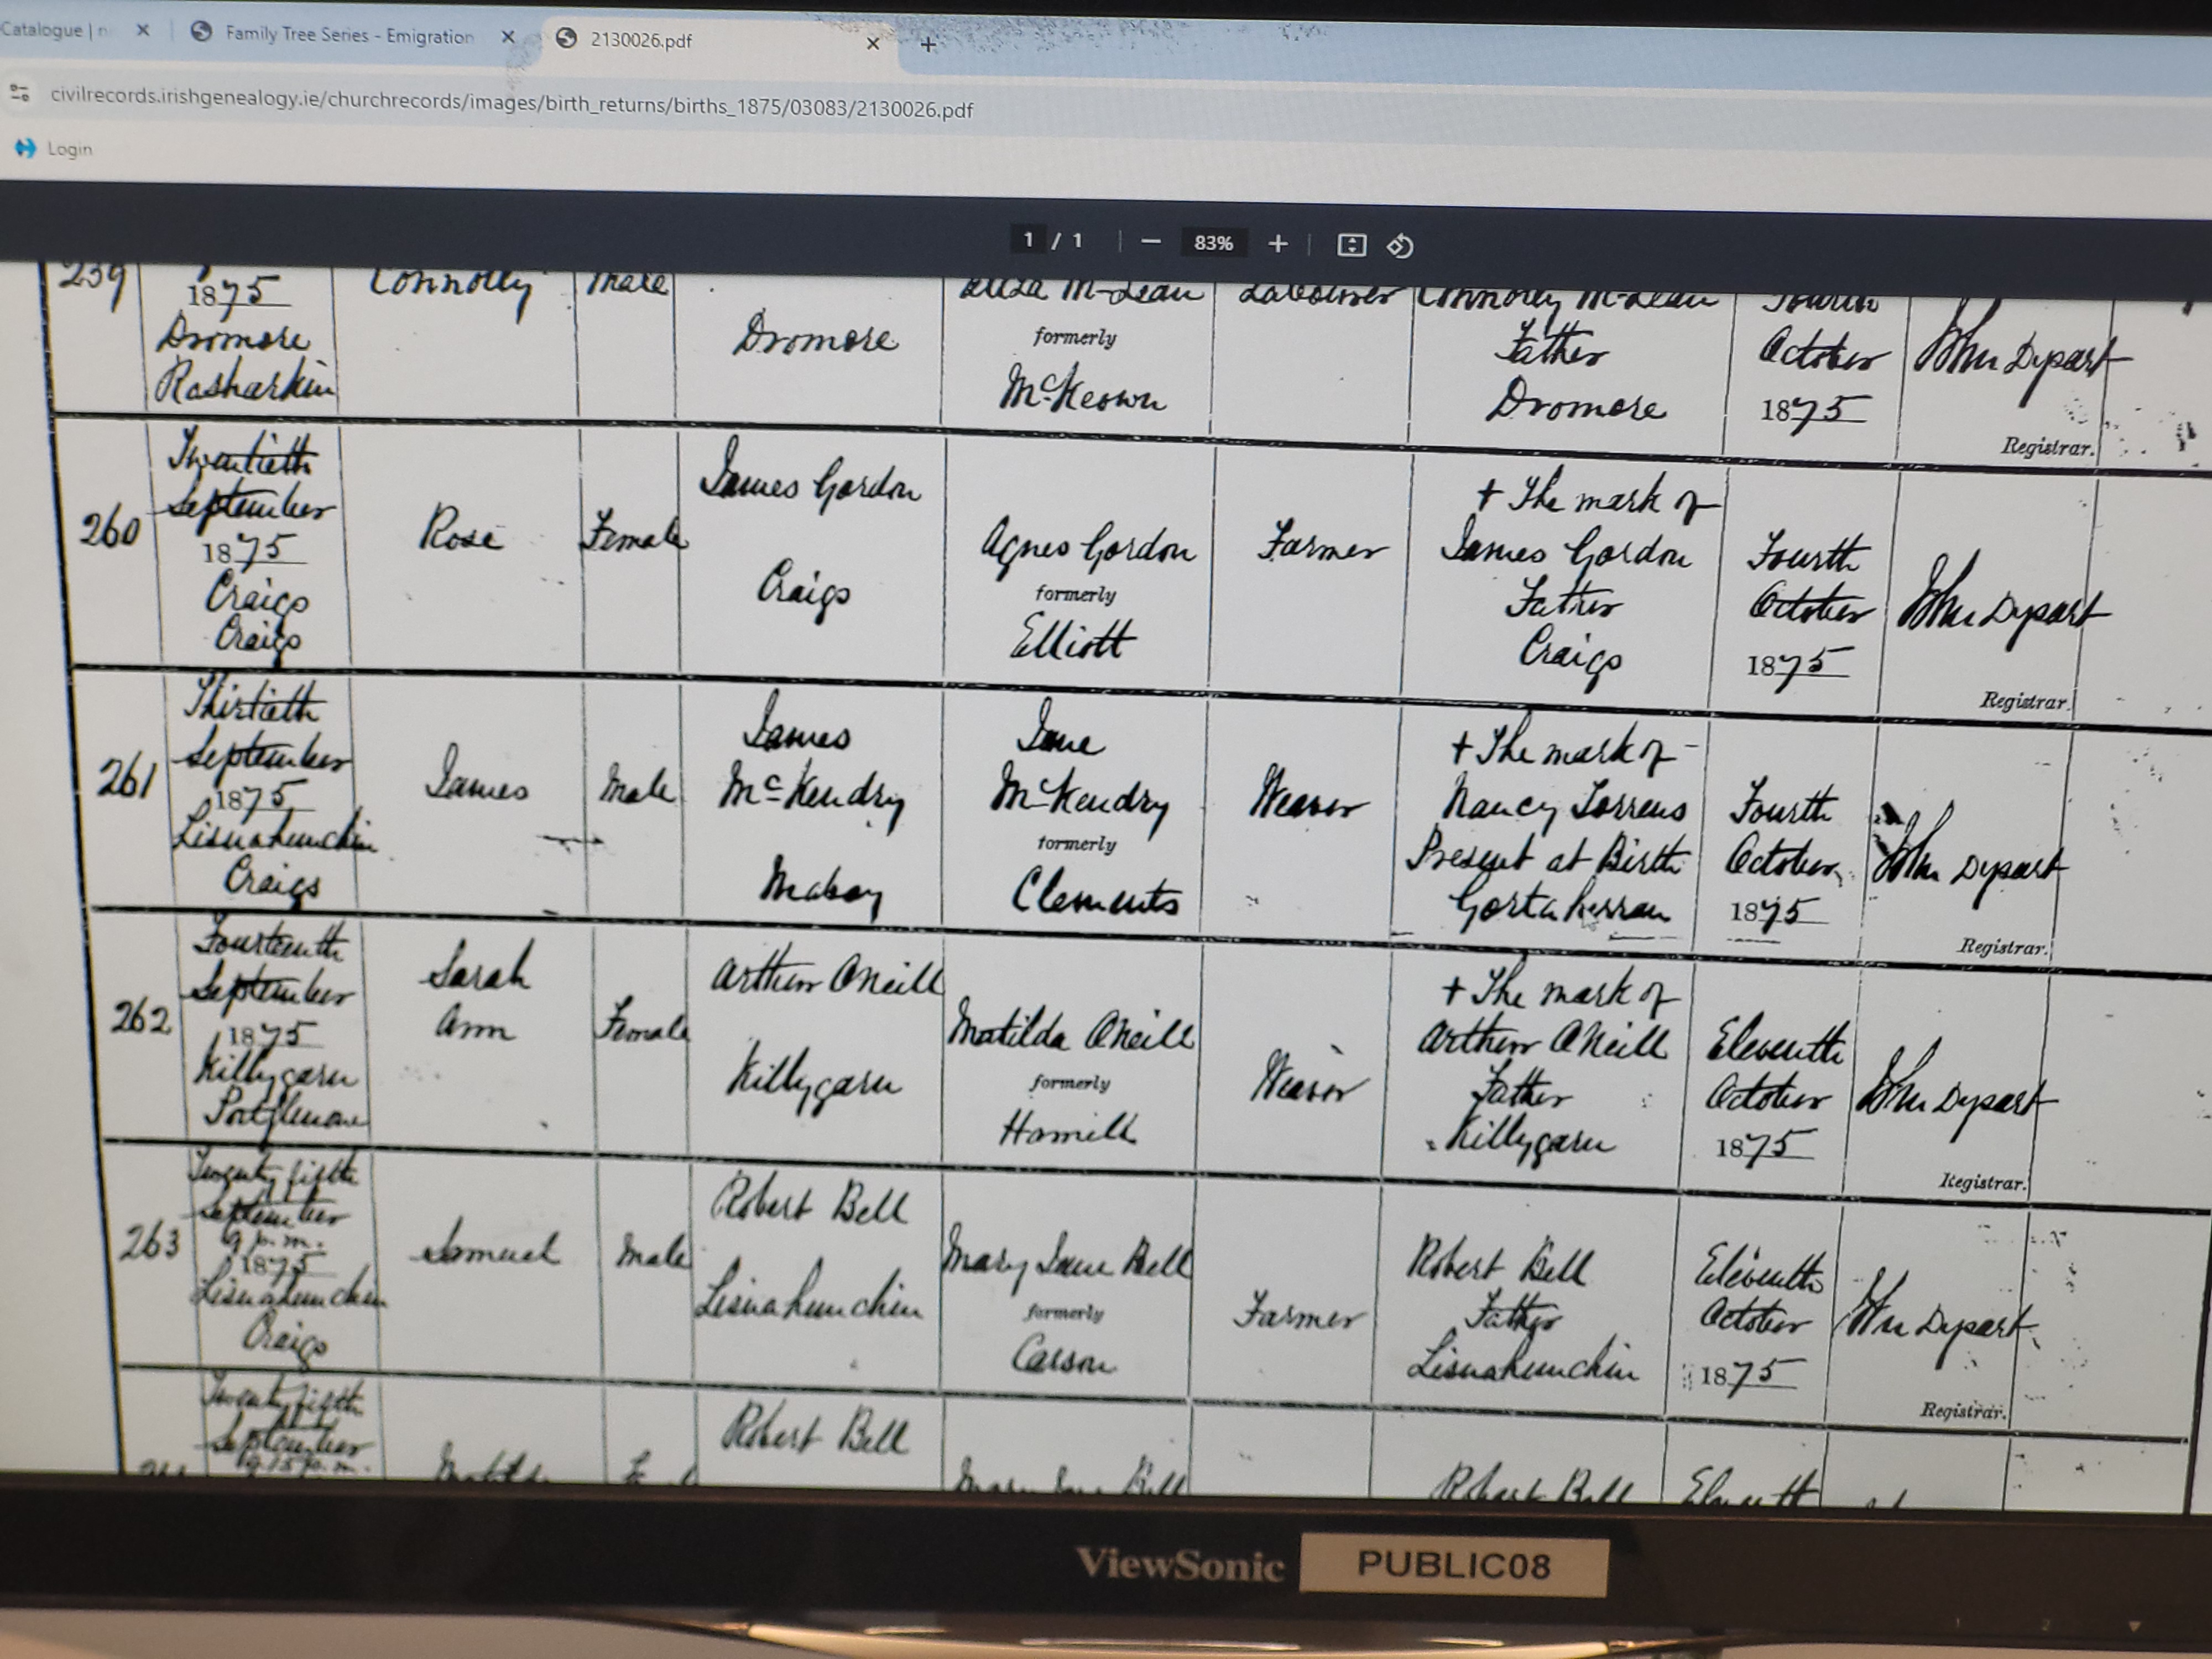 Catalogue | n
Family Tree Series - Emigration
2130026.pdf
civilrecords.irishgenealogy.ie/churchrecords/images/birth_returns/births_1875/03083/2130026.pdf
Login
1 / 1
83%
259
1875
Dromore
Rasharkin
Connolly
Male
Dromore
Eliza McLean
formerly
McKeown
Labourer
Connolly McLean
Father
Dromore
Fourth
October
1875
Registrar.
260
Twentieth
September
1875
Craigs
Craigs
Rose
Female
James Gordon
Craigs
Agnes Gordon
formerly
Elliott
Farmer
+ The mark of
James Gordon
Father
Craigs
Fourth
October
1875
Registrar.
261
Thirtieth
September
1875
Lisnahunchin
Craigs
James
Male
James
McKendry
Jane
McKendry
formerly
Clements
Weaver
+ The mark of
Nancy Torrens
Present at Birth
Fourth
October
1875
Registrar.
262
Fourteenth
September
1875
Killygarn
Portglenone
Sarah
Ann
Female
Arthur ONeill
Killygarn
Matilda ONeill
formerly
Hamill
Weaver
+ The mark of
Arthur ONeill
Father
Killygarn
Eleventh
October
1875
Registrar.
263
Twenty fifth
September
9 p.m.
1875
Lisnahunchin
Craigs
Samuel
Male
Robert Bell
Lisnahunchin
Mary Jane Bell
formerly
Carson
Farmer
Robert Bell
Father
Lisnahunchin
Eleventh
October
1875
Registrar.
Twenty fifth
September
9 15 p.m.
Matilda
Robert Bell
Mary Jane Bell
Robert Bell
Eleventh
ViewSonic
PUBLIC08